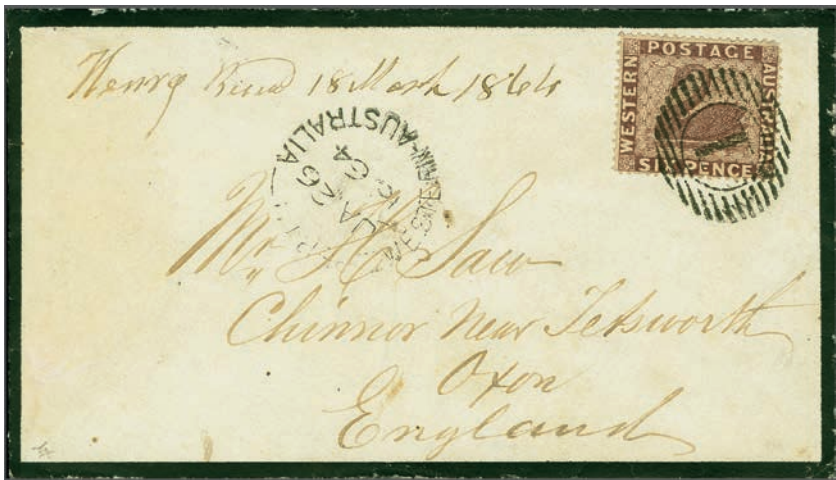 Henry 18 March 1864
WESTERN POSTAGE AUSTRALIA
SIX PENCE
1
WESTERN-AUSTRALIA
JA 26
64
Mr. H. Saw
Chinnor Near Tetsworth
Oxon
England